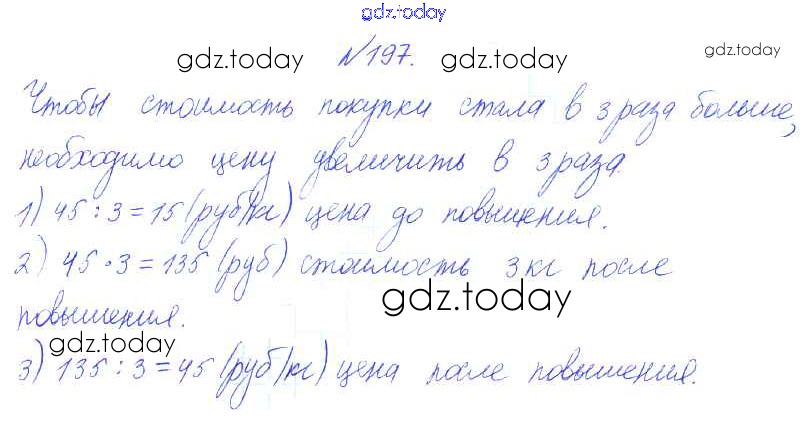 gdz.today
gdz.today №197. gdz.today gdz.today
Чтобы стоимость покупки стала в 3 раза больше,
необходимо цену увеличить в 3 раза.
1) 45 : 3 = 15 (руб/кг) цена до повышения.
2) 45 · 3 = 135 (руб) стоимость 3 кг после
gdz.today
повышения.
gdz.today
3) 135 : 3 = 45 (руб/кг) цена после повышения.